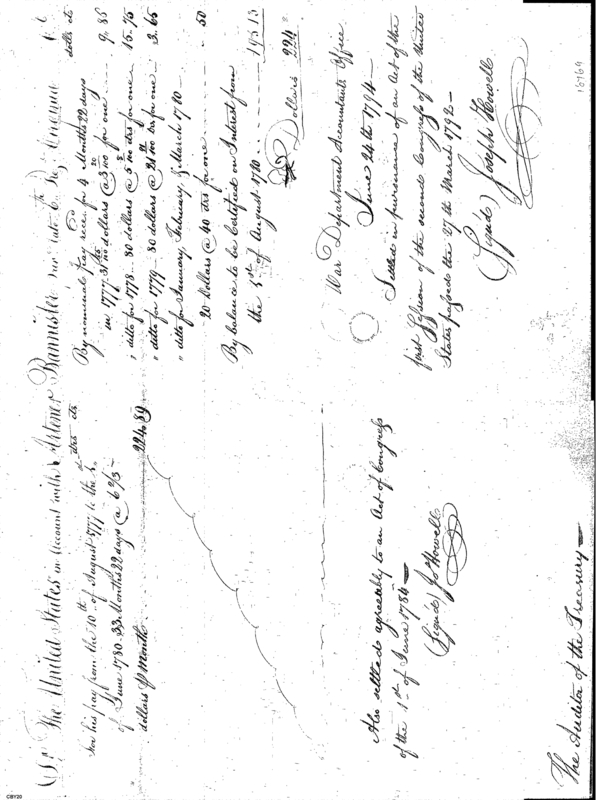 Dr. The United States in Account with Artemas Bannister late 6th Regiment Cr
dlrs cts
For his pay from the 10th of August 1777 to the
of June 1780. 33 Months 22 days @ 6 2/3
dollars pr Month
224.89
dolls cts
By nominal pay recd. for 4 Months 22 days
in 1777 dollars @ for one
9.85
" ditto for 1778 - 80 dollars @ for one
15.75
" ditto for 1779 - 80 dollars @ for one
3.65
" ditto for January, February, & March 1780 -
20 dollars @ 40 drs for one
.50
By balance to be Certified on Interest from
the 5th of August 1780
195.13
Dollars 224
War Department Accountants Office
June 24th 1794 -
Settled in pursuance of an Act of the
first Session of the second Congress of the United
States passed the 27th March 1792 -
(Signed) Joseph Howell
Also settled agreeably to an Act of Congress
of the 1st of June 1784 -
(Signed) Jo Howell
The Auditor of the Treasury -
18769
CBY20